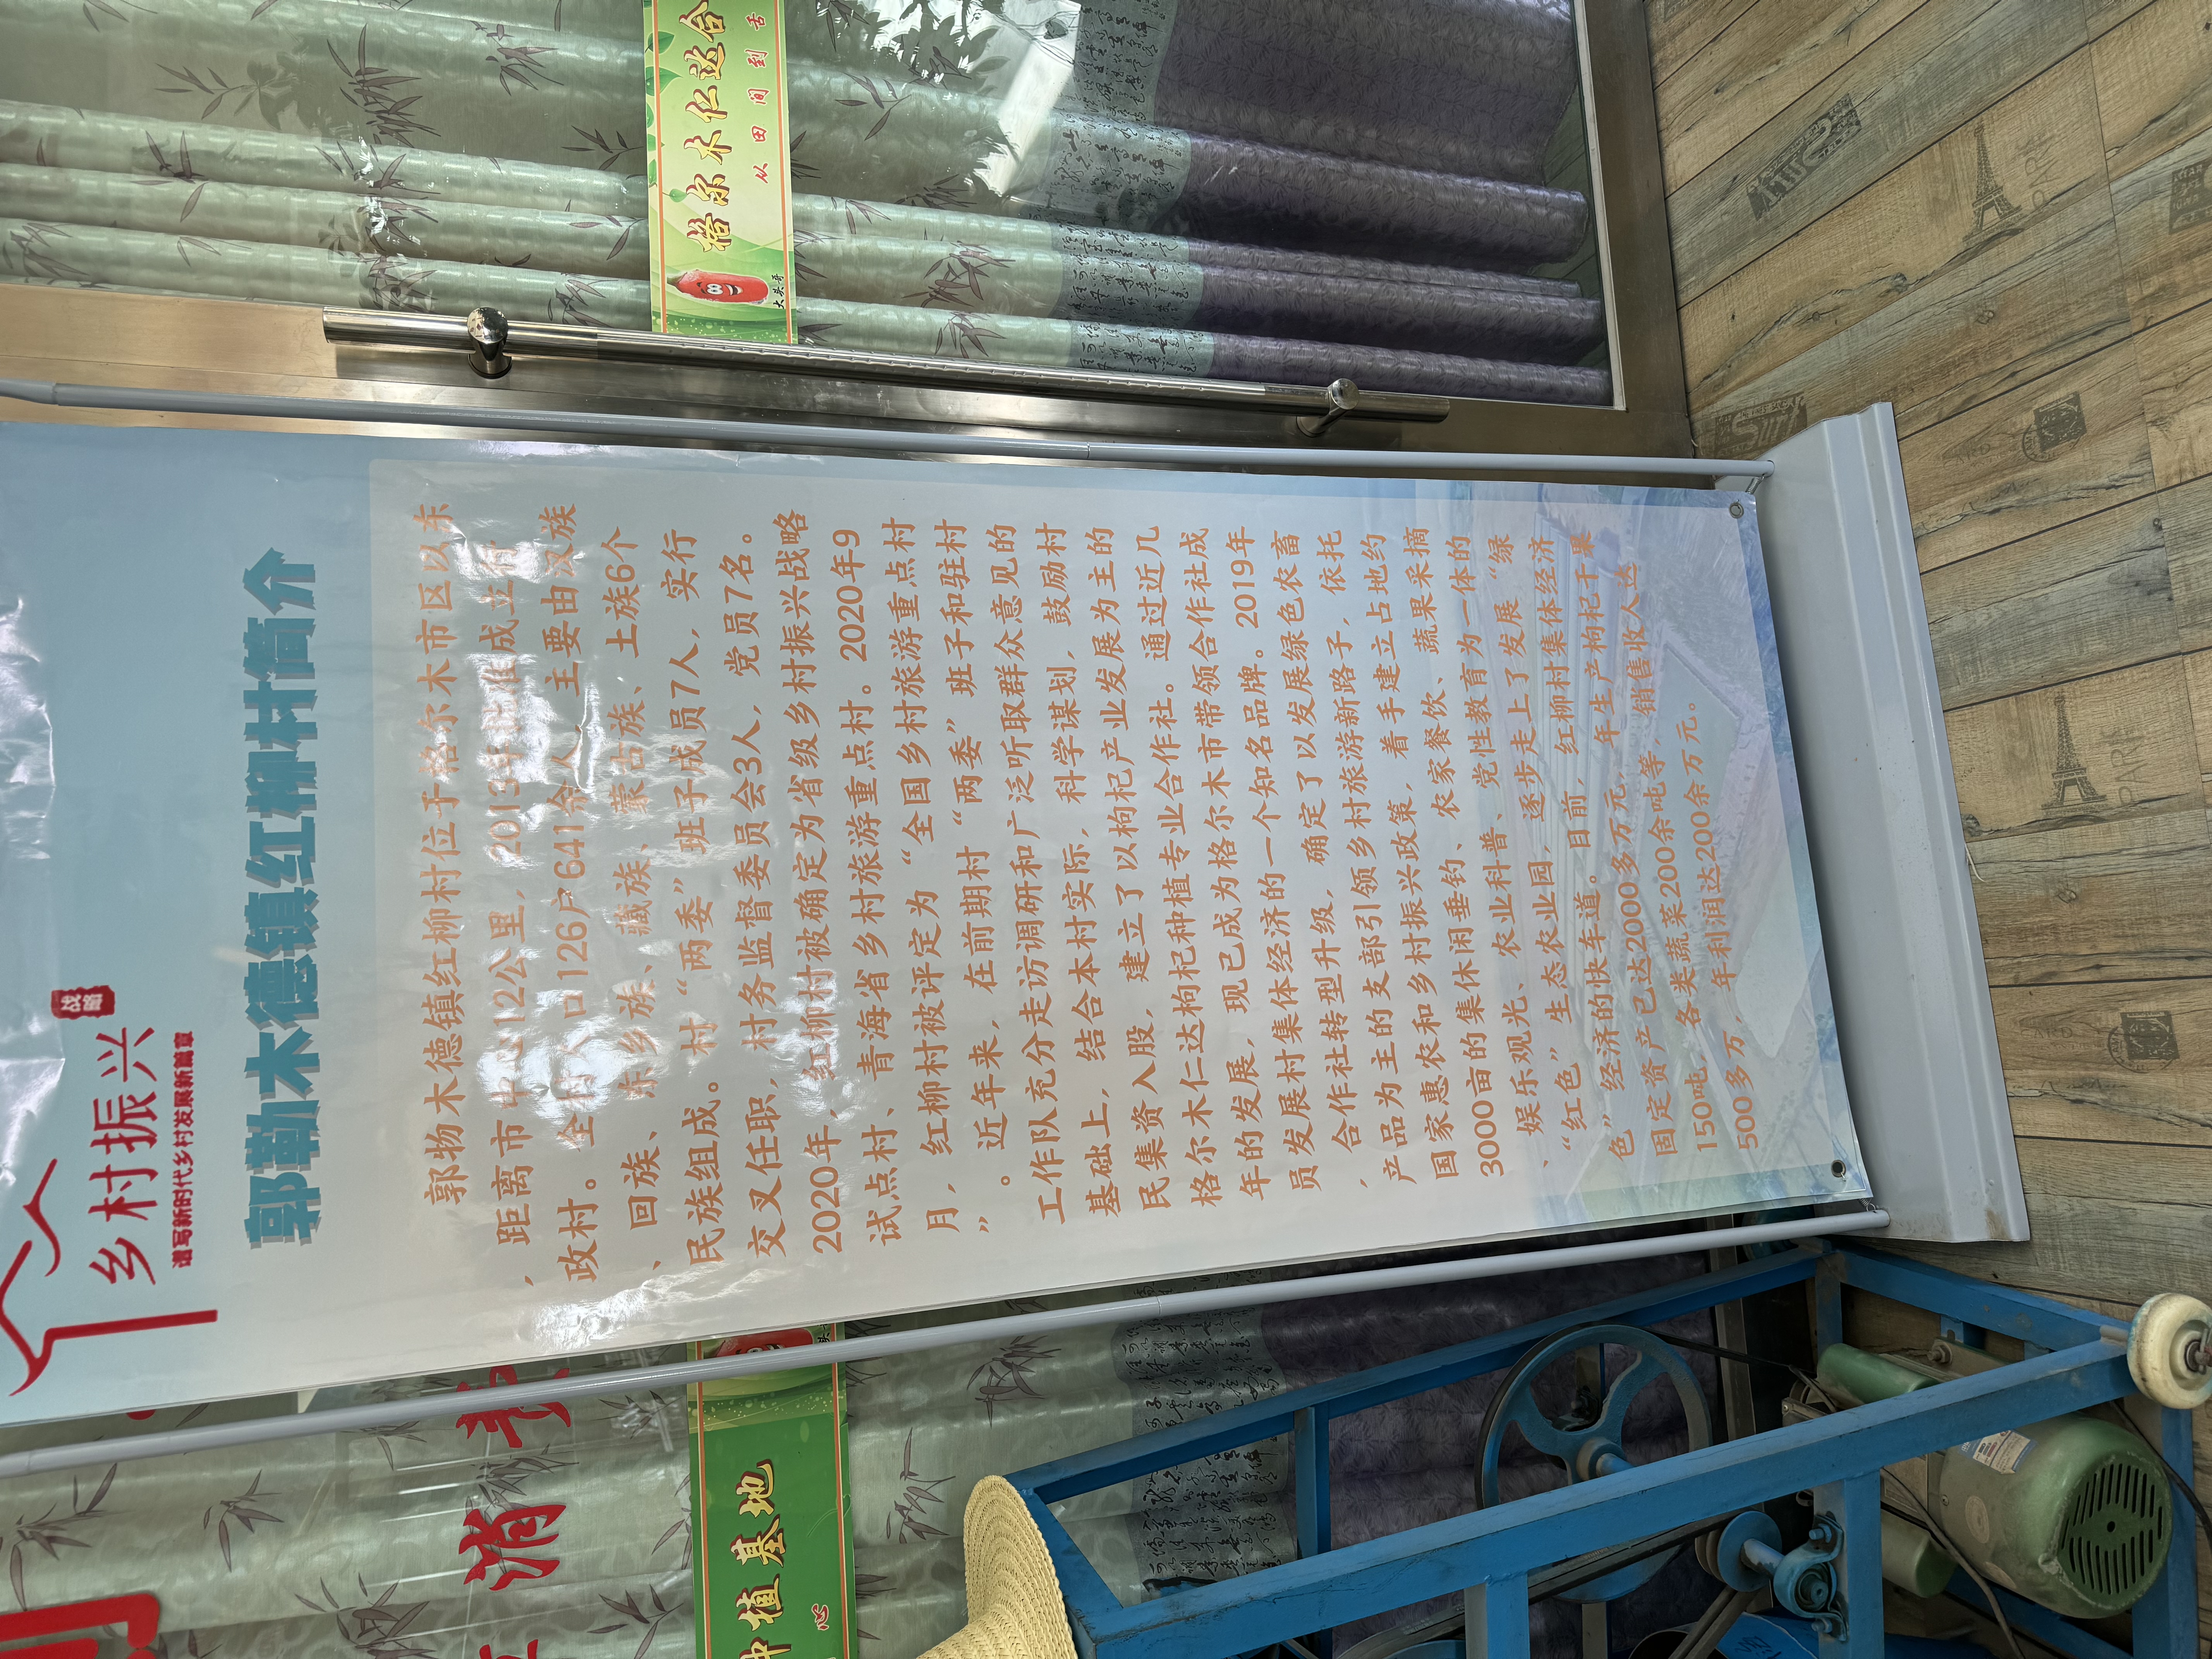 乡村振兴
战略
谱写新时代乡村发展新篇章
郭勒木德镇红柳村简介
郭物木德镇红柳村位于格尔木市区以东
，距离市中心12公里，2013年批准成立行
政村。全村人口126户641余人，主要由汉族
、回族、东乡族、藏族、蒙古族、土族6个
民族组成。村“两委”班子成员7人，实行
交叉任职，村务监督委员会3人，党员7名。
2020年，红柳村被确定为省级乡村振兴战略
试点村、青海省乡村旅游重点村。2020年9
月，红柳村被评定为“全国乡村旅游重点村
”。近年来，在前期村“两委”班子和驻村
工作队充分走访调研和广泛听取群众意见的
基础上，结合本村实际，科学谋划，鼓励村
民集资入股，建立了以枸杞产业发展为主的
格尔木仁达枸杞种植专业合作社。通过近几
年的发展，现已成为格尔木市带领合作社成
员发展村集体经济的一个知名品牌。2019年
，合作社转型升级，确定了以发展绿色农畜
产品为主的支部引领乡村旅游新路子，依托
国家惠农和乡村振兴政策，着手建立占地约
3000亩的集休闲垂钓、农家餐饮、蔬果采摘
、娱乐观光、农业科普、党性教育为一体的
“红色”生态农业园，逐步走上了发展“绿
色”经济的快车道。目前，红柳村集体经济
固定资产已达2000多万元，年生产枸杞干果
150吨，各类蔬菜200余吨等，销售收入达
500多万，年利润达200余万元。
格尔木仁达合
从田间到舌
大头哥
种植基地
心
消